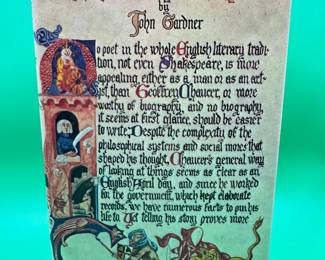 by
John Gardner
No poet in the whole English literary tradi-
tion, not even Shakespeare, is more
appealing, either as a man or as an art-
ist, than Geoffrey Chaucer, or more
worthy of biography, and no biography,
it seems at first glance, should be easier
to write. Despite the complexity of the
philosophical systems and social mores that
shaped his thought, Chaucer's general way
of looking at things seems as clear as an
English April day, and since he worked
for the government, which kept elaborate
records, we have numerous facts to pin his
life to. Yet telling his story proves more